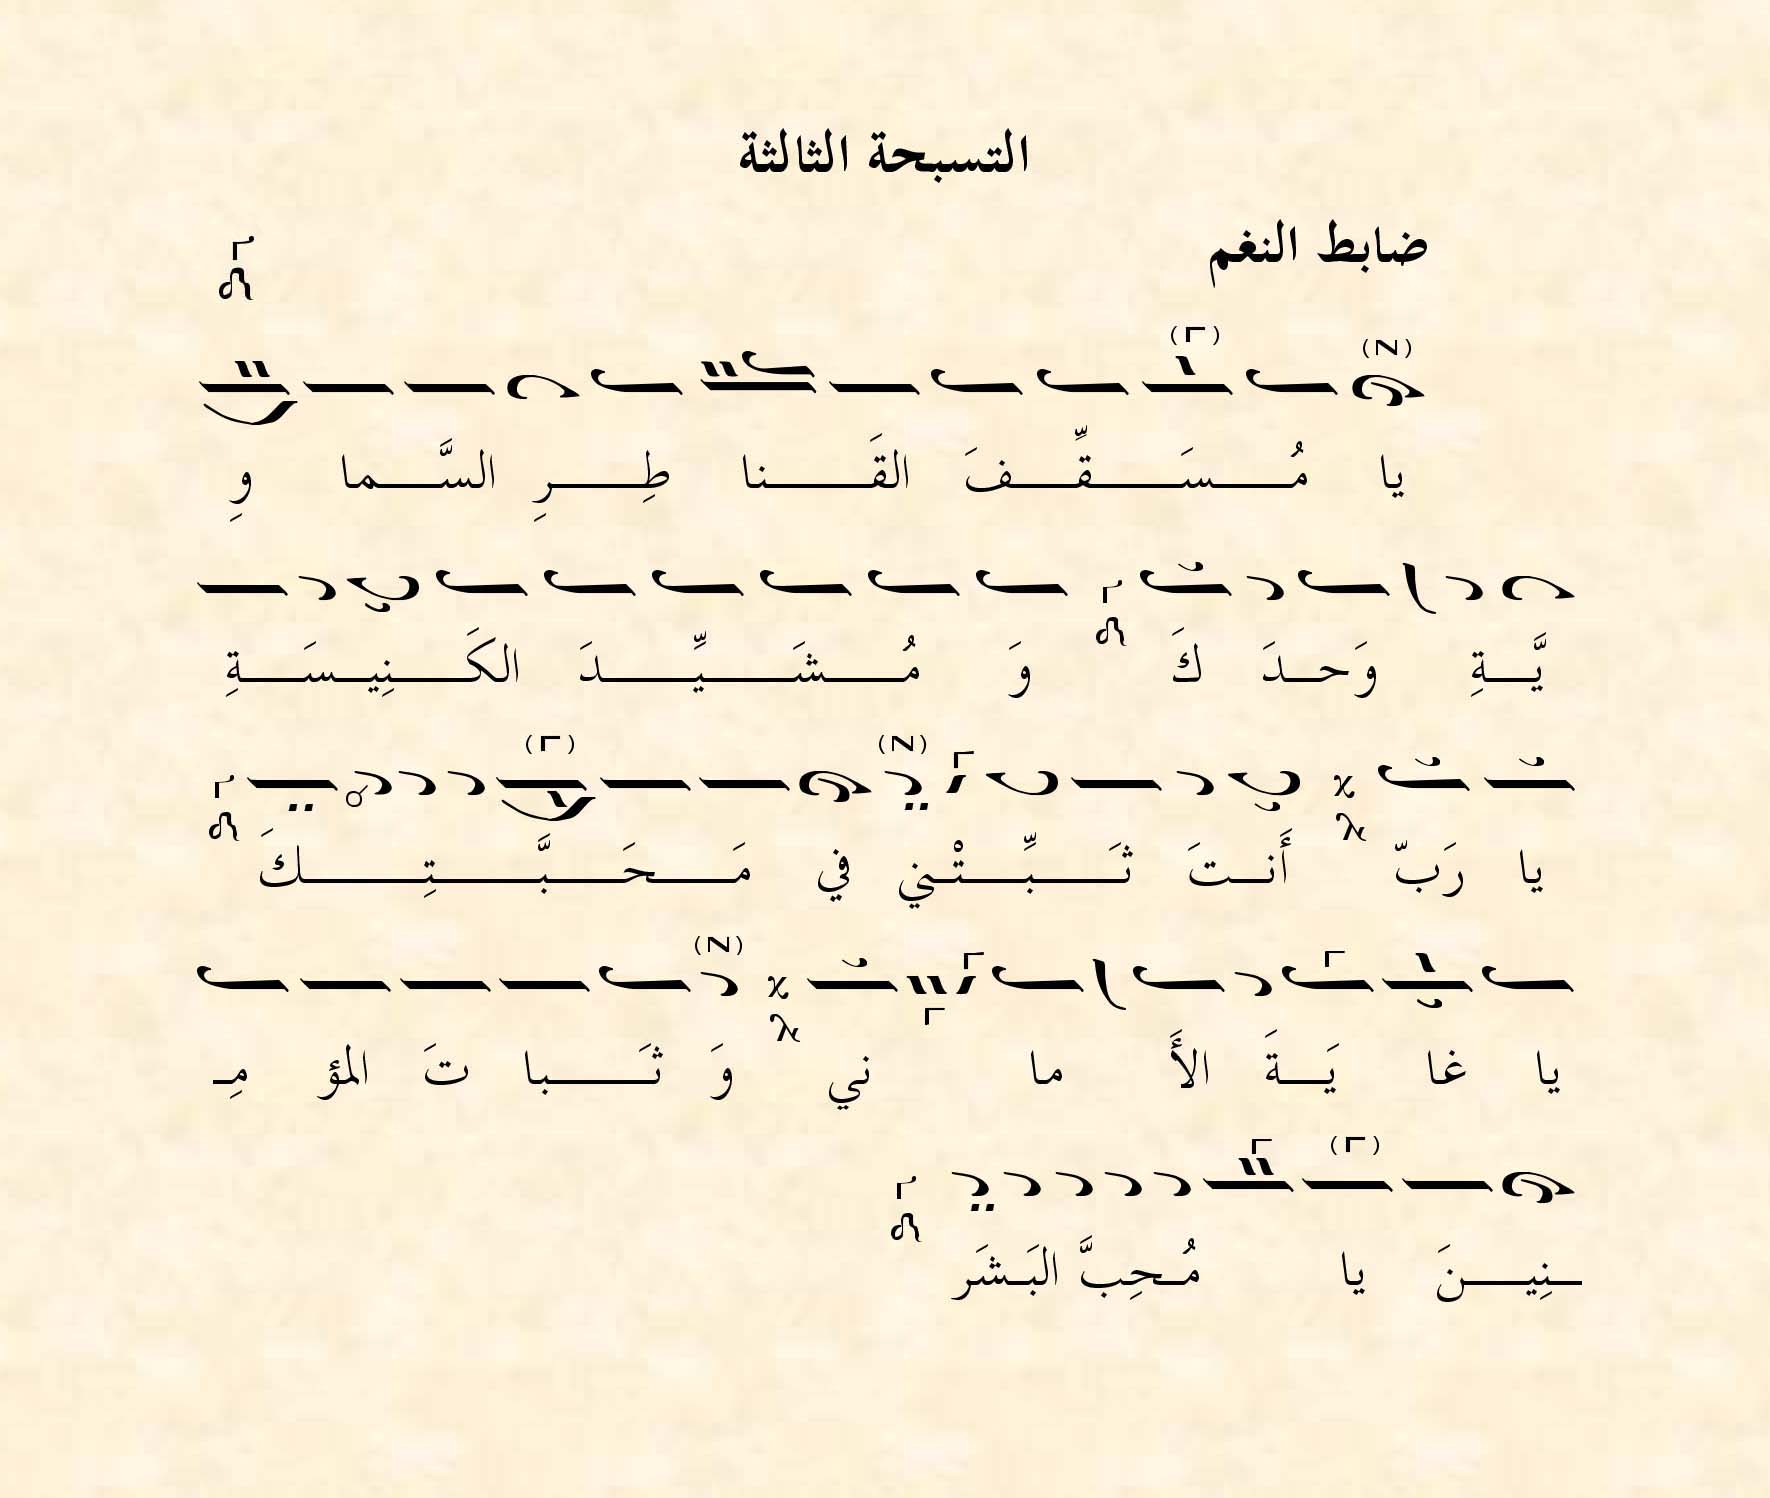 التسبحة الثالثة
ضابط النغم
يا مُسَقِّفَ القَنا طِرِ السَّما وِ
يَّةِ وَحدَ كَ وَ مُشَيِّدَ الكَنِيسَةِ
يا رَبّ أَنتَ ثَبِّتْني في مَحَبَّتِكَ
يا غا يَةَ الأَ ما ني وَ ثَبا تَ المؤ مِـ
ـنِينَ يا مُحِبَّ البَشَر